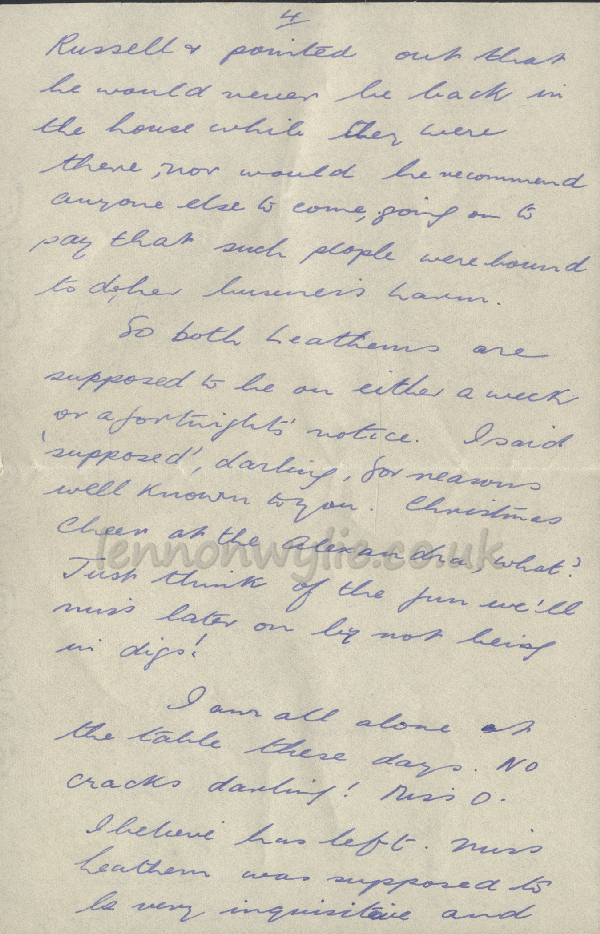 4
Russell & pointed out that
he would never be back in
the house while they were
there, nor would he recommend
anyone else to come, going on to
say that such people were bound
to do her business harm.
So both Leathems are
supposed to be on either a week
or a fortnights' notice. I said
'supposed', darling, for reasons
well known to you. Christmas
Cheer at the Alexandra, what?
lennonwylie.co.uk
Just think of the fun we'll
miss later on by not being
in digs!
I am all alone at
the table these days. No
cracks darling! Miss O.
I believe has left. Miss
Leathem was supposed to
be very inquisitive and